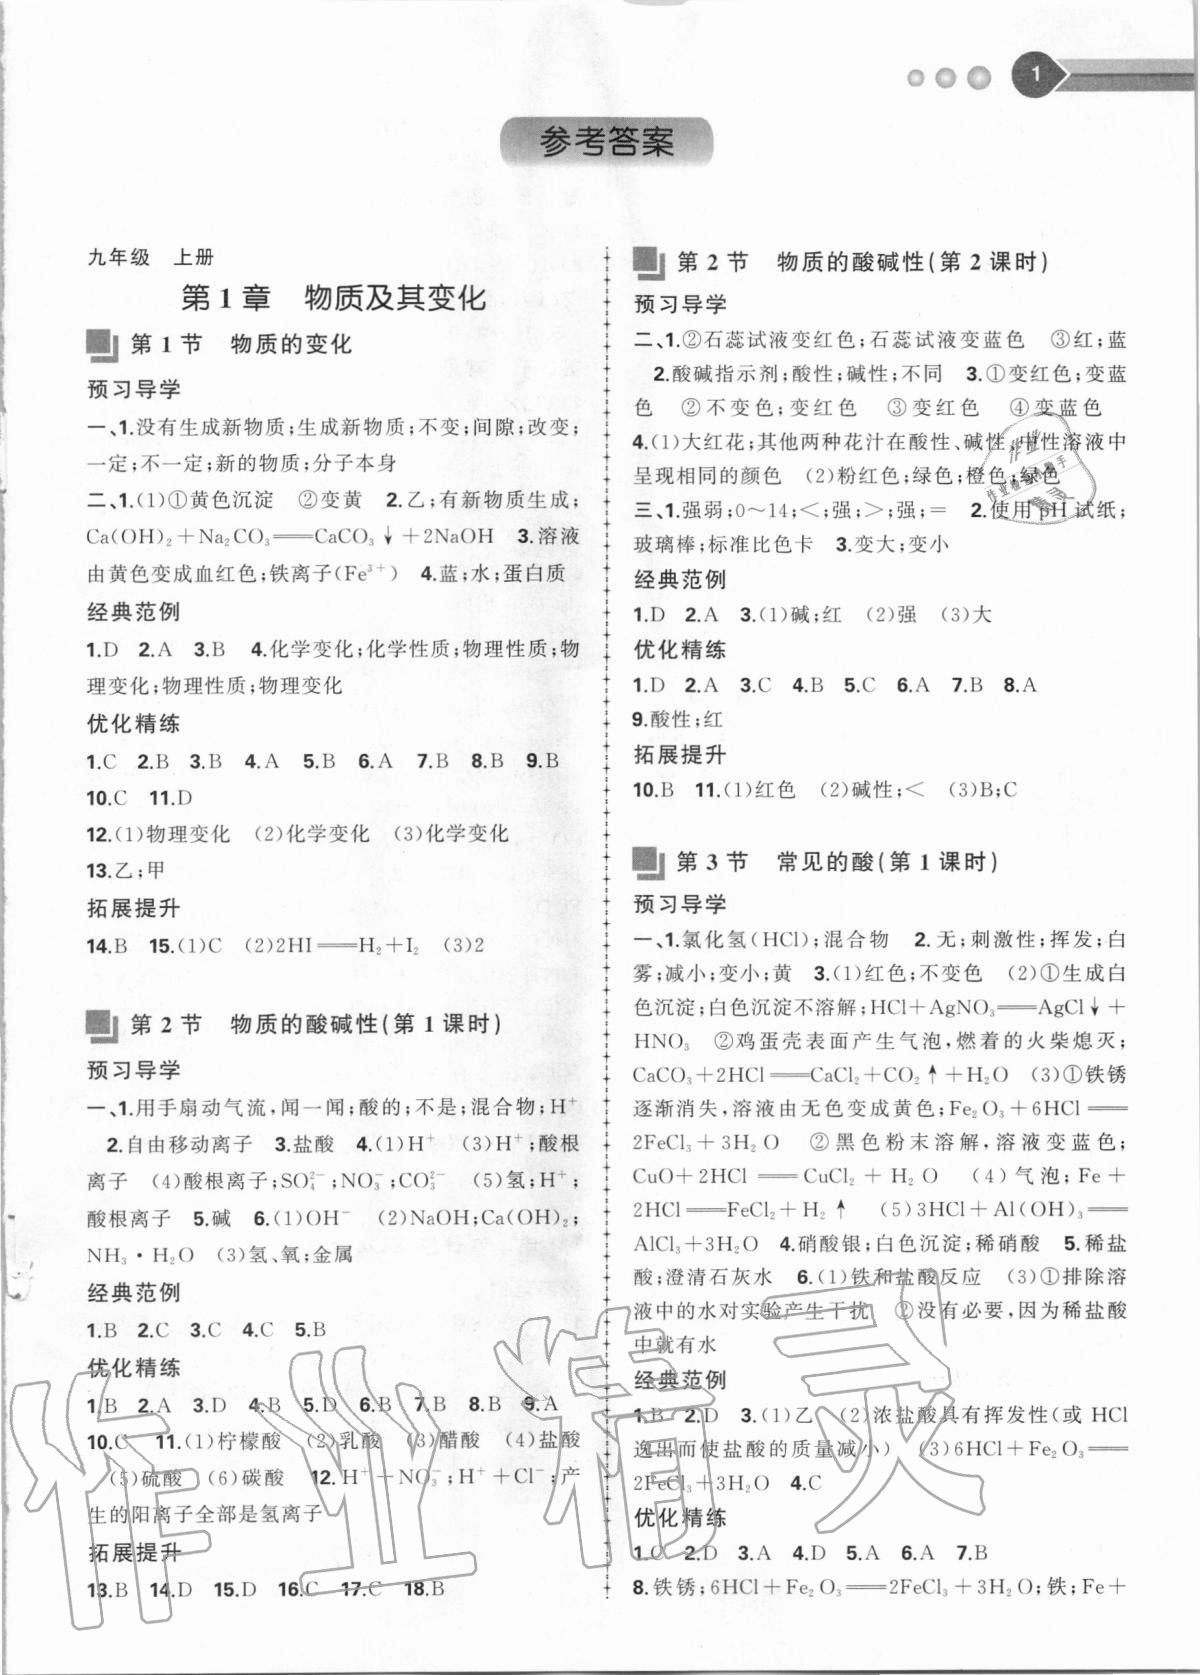 1
参考答案
九年级 上册
第1章 物质及其变化
第1节 物质的变化
预习导学
一、1.没有生成新物质;生成新物质;不变;间隙;改变;
一定;不一定;新的物质;分子本身
二、1.(1)①黄色沉淀 ②变黄 2.乙;有新物质生成;
Ca(OH)₂+Na₂CO₃══CaCO₃↓+2NaOH 3.溶液
由黄色变成血红色;铁离子(Fe³⁺) 4.蓝;水;蛋白质
经典范例
1.D 2.A 3.B 4.化学变化;化学性质;物理性质;物
理变化;物理性质;物理变化
优化精练
1.C 2.B 3.B 4.A 5.B 6.A 7.B 8.B 9.B
10.C 11.D
12.(1)物理变化 (2)化学变化 (3)化学变化
13.乙;甲
拓展提升
14.B 15.(1)C (2)2HI══H₂+I₂ (3)2
第2节 物质的酸碱性(第1课时)
预习导学
一、1.用手扇动气流,闻一闻;酸的;不是;混合物;H⁺
2.自由移动离子 3.盐酸 4.(1)H⁺ (3)H⁺;酸根
离子 (4)酸根离子;SO₄²⁻;NO₃⁻;CO₃²⁻ (5)氢;H⁺;
酸根离子 5.碱 6.(1)OH⁻ (2)NaOH;Ca(OH)₂;
NH₃·H₂O (3)氢、氧;金属
经典范例
1.B 2.C 3.C 4.C 5.B
优化精练
1.B 2.A 3.D 4.B 5.D 6.B 7.B 8.B 9.A
10.C 11.(1)柠檬酸 (2)乳酸 (3)醋酸 (4)盐酸
(5)硫酸 (6)碳酸 12.H⁺+NO₃⁻;H⁺+Cl⁻;产
生的阳离子全部是氢离子
拓展提升
13.B 14.D 15.D 16.C 17.C 18.B
第2节 物质的酸碱性(第2课时)
预习导学
二、1.②石蕊试液变红色;石蕊试液变蓝色 ③红;蓝
2.酸碱指示剂;酸性;碱性;不同 3.①变红色;变蓝
色 ②不变色;变红色 ③变红色 ④变蓝色
4.(1)大红花;其他两种花汁在酸性、碱性、中性溶液中
呈现相同的颜色 (2)粉红色;绿色;橙色;绿色
三、1.强弱;0～14;<;强;>;强;= 2.使用pH试纸;
玻璃棒;标准比色卡 3.变大;变小
经典范例
1.D 2.A 3.(1)碱;红 (2)强 (3)大
优化精练
1.D 2.A 3.C 4.B 5.C 6.A 7.B 8.A
9.酸性;红
拓展提升
10.B 11.(1)红色 (2)碱性;< (3)B;C
第3节 常见的酸(第1课时)
预习导学
一、1.氯化氢(HCl);混合物 2.无;刺激性;挥发;白
雾;减小;变小;黄 3.(1)红色;不变色 (2)①生成白
色沉淀;白色沉淀不溶解;HCl+AgNO₃══AgCl↓+
HNO₃ ②鸡蛋壳表面产生气泡,燃着的火柴熄灭;
CaCO₃+2HCl══CaCl₂+CO₂↑+H₂O (3)①铁锈
逐渐消失,溶液由无色变成黄色;Fe₂O₃+6HCl══
2FeCl₃+3H₂O ②黑色粉末溶解,溶液变蓝色;
CuO+2HCl══CuCl₂+H₂O (4)气泡;Fe+
2HCl══FeCl₂+H₂↑ (5)3HCl+Al(OH)₃══
AlCl₃+3H₂O 4.硝酸银;白色沉淀;稀硝酸 5.稀盐
酸;澄清石灰水 6.(1)铁和盐酸反应 (3)①排除溶
液中的水对实验产生干扰 ②没有必要,因为稀盐酸
中就有水
经典范例
1.B 2.D 3.(1)乙 (2)浓盐酸具有挥发性(或HCl
逸出而使盐酸的质量减小) (3)6HCl+Fe₂O₃══
2FeCl₃+3H₂O 4.C
优化精练
1.C 2.D 3.A 4.D 5.A 6.A 7.B
8.铁锈;6HCl+Fe₂O₃══2FeCl₃+3H₂O;铁;Fe+
作业精灵